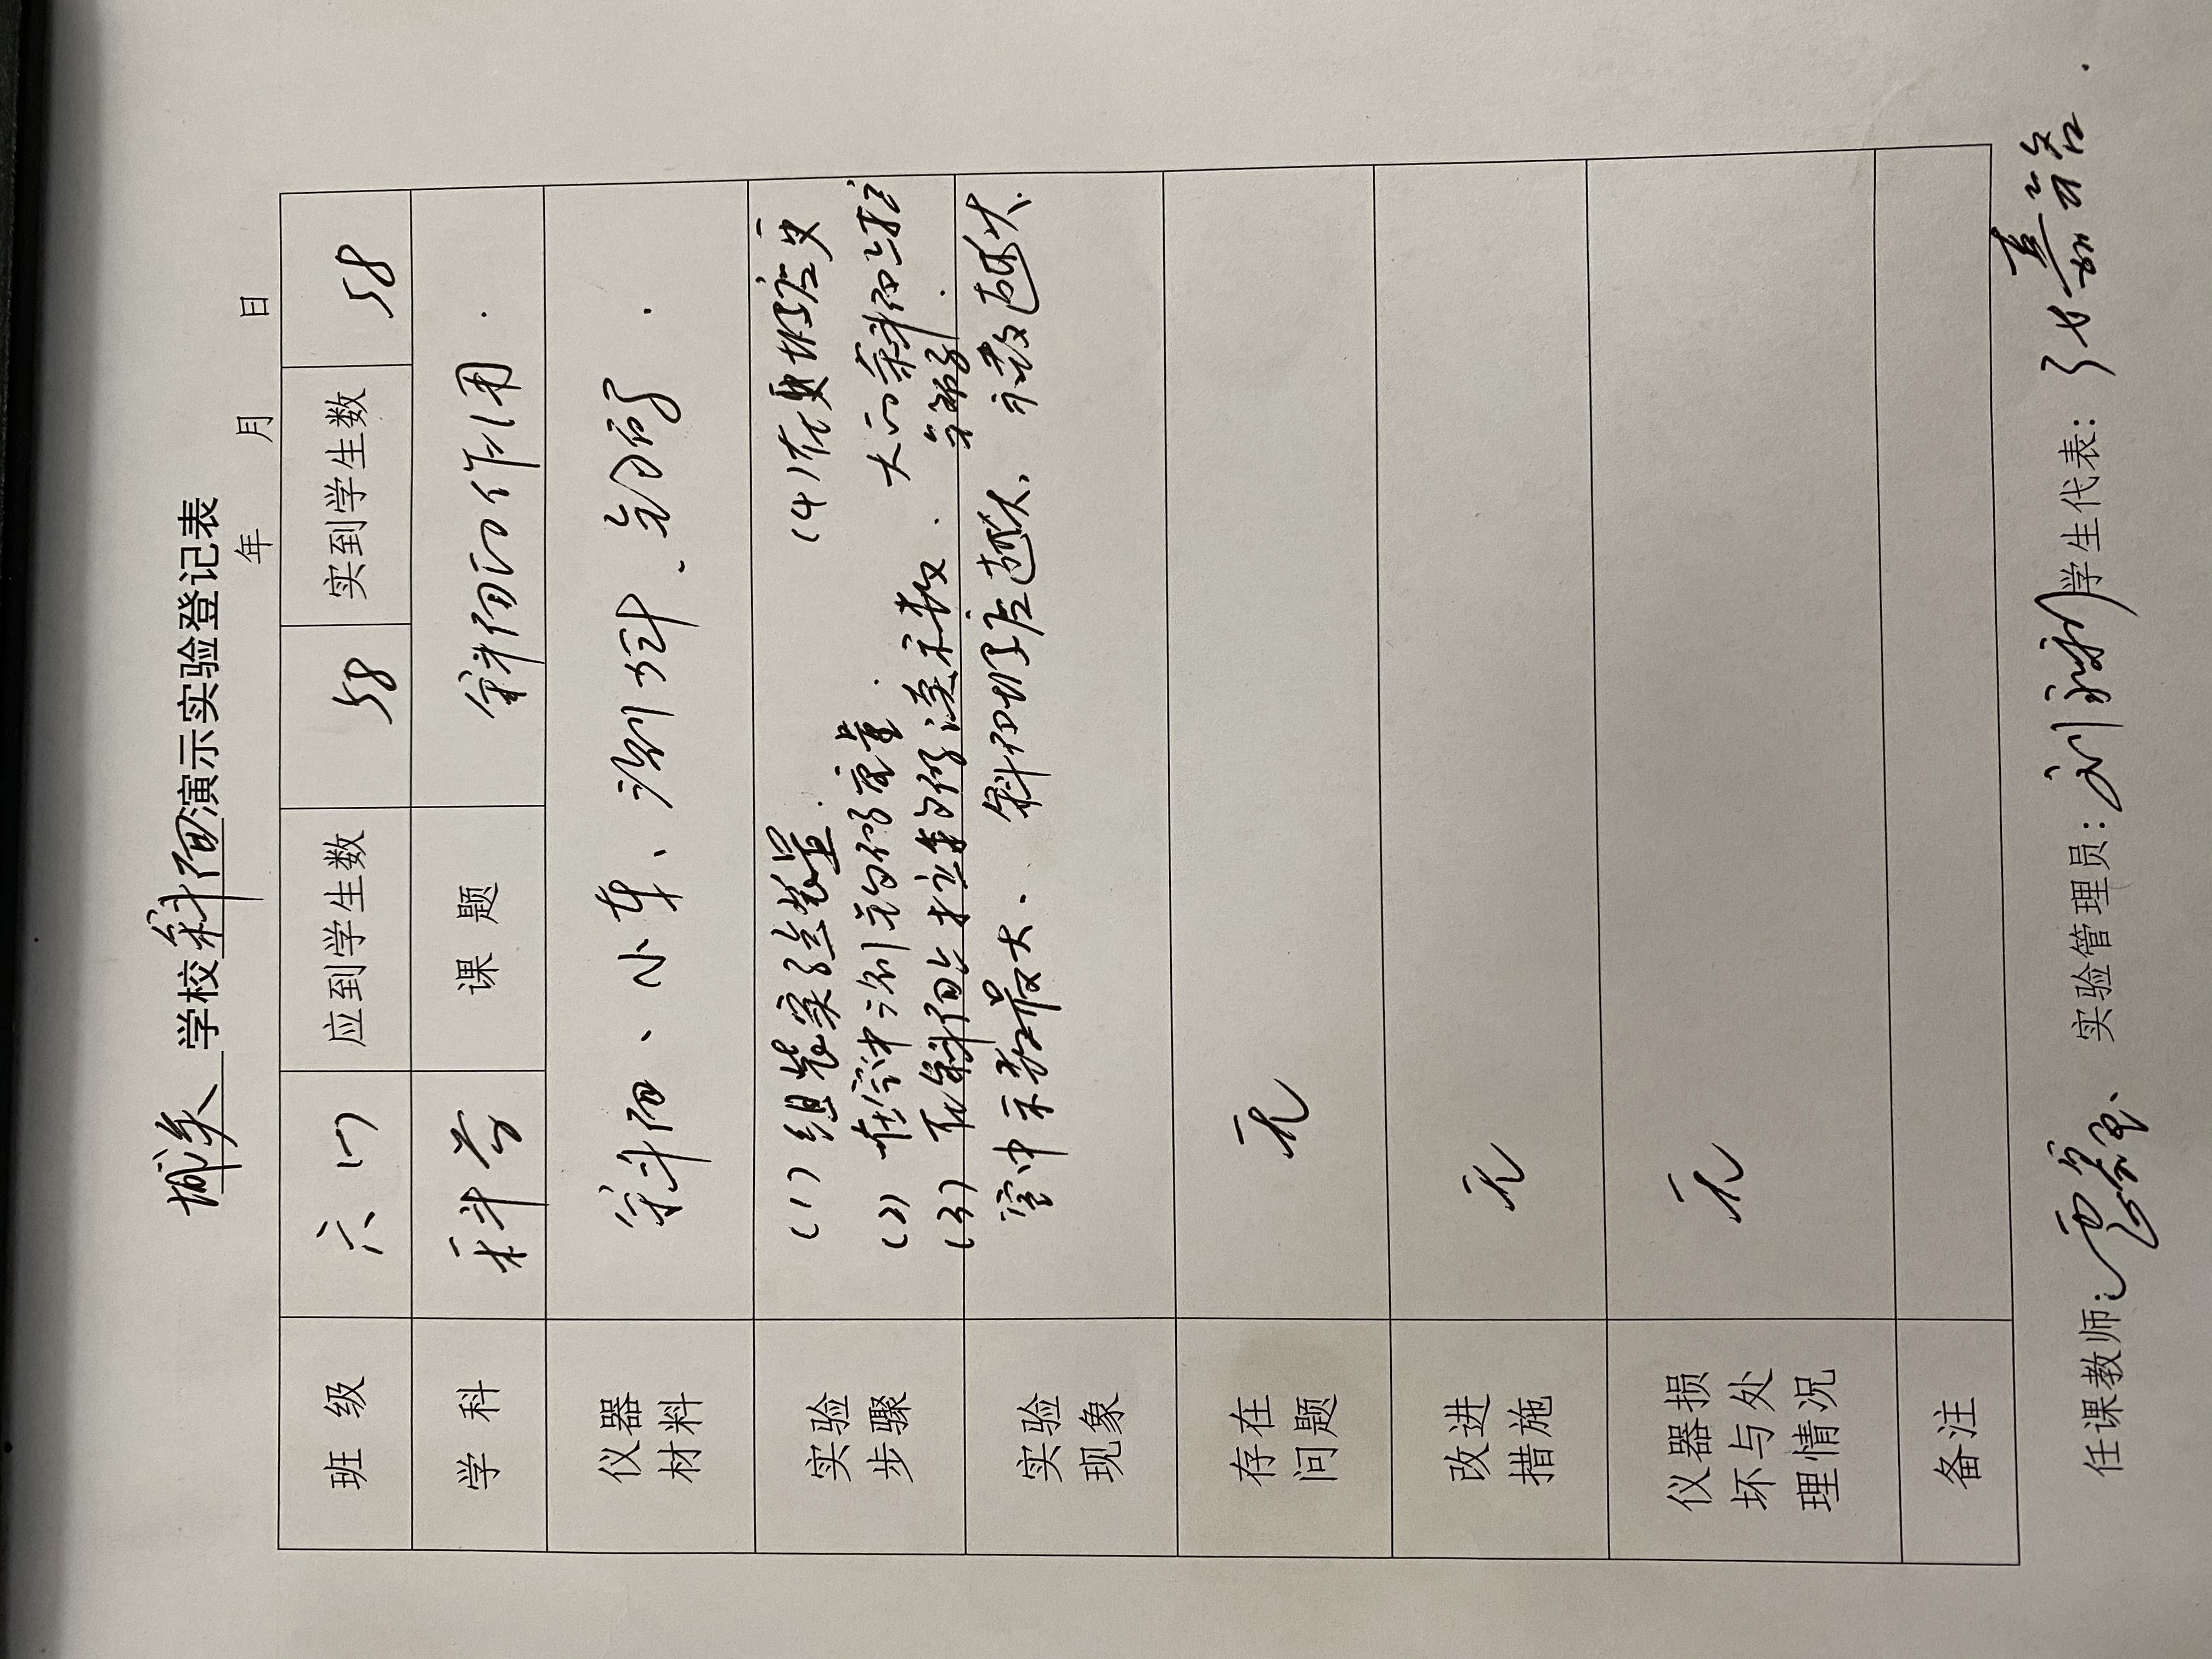 城关学校斜面演示实验登记表
年 月 日
班 级 六(一) 应到学生数 58 实到学生数 58
学 科 科学 课 题 斜面的作用.
仪器材料 斜面、小车、测力计、钩码.
实验步骤 (1)组装实验装置.
(2)在空中测钩码重量.
(3)在斜面上拉钩码读示数.
(4)在更坡度大的斜面上拉钩码.
实验现象 空中示数最大. 斜面坡度越大, 示数越大.
存在问题 无
改进措施 无
仪器损坏与处理情况 无
备注
任课教师: 实验管理员: 刘 学生代表: 张嘉